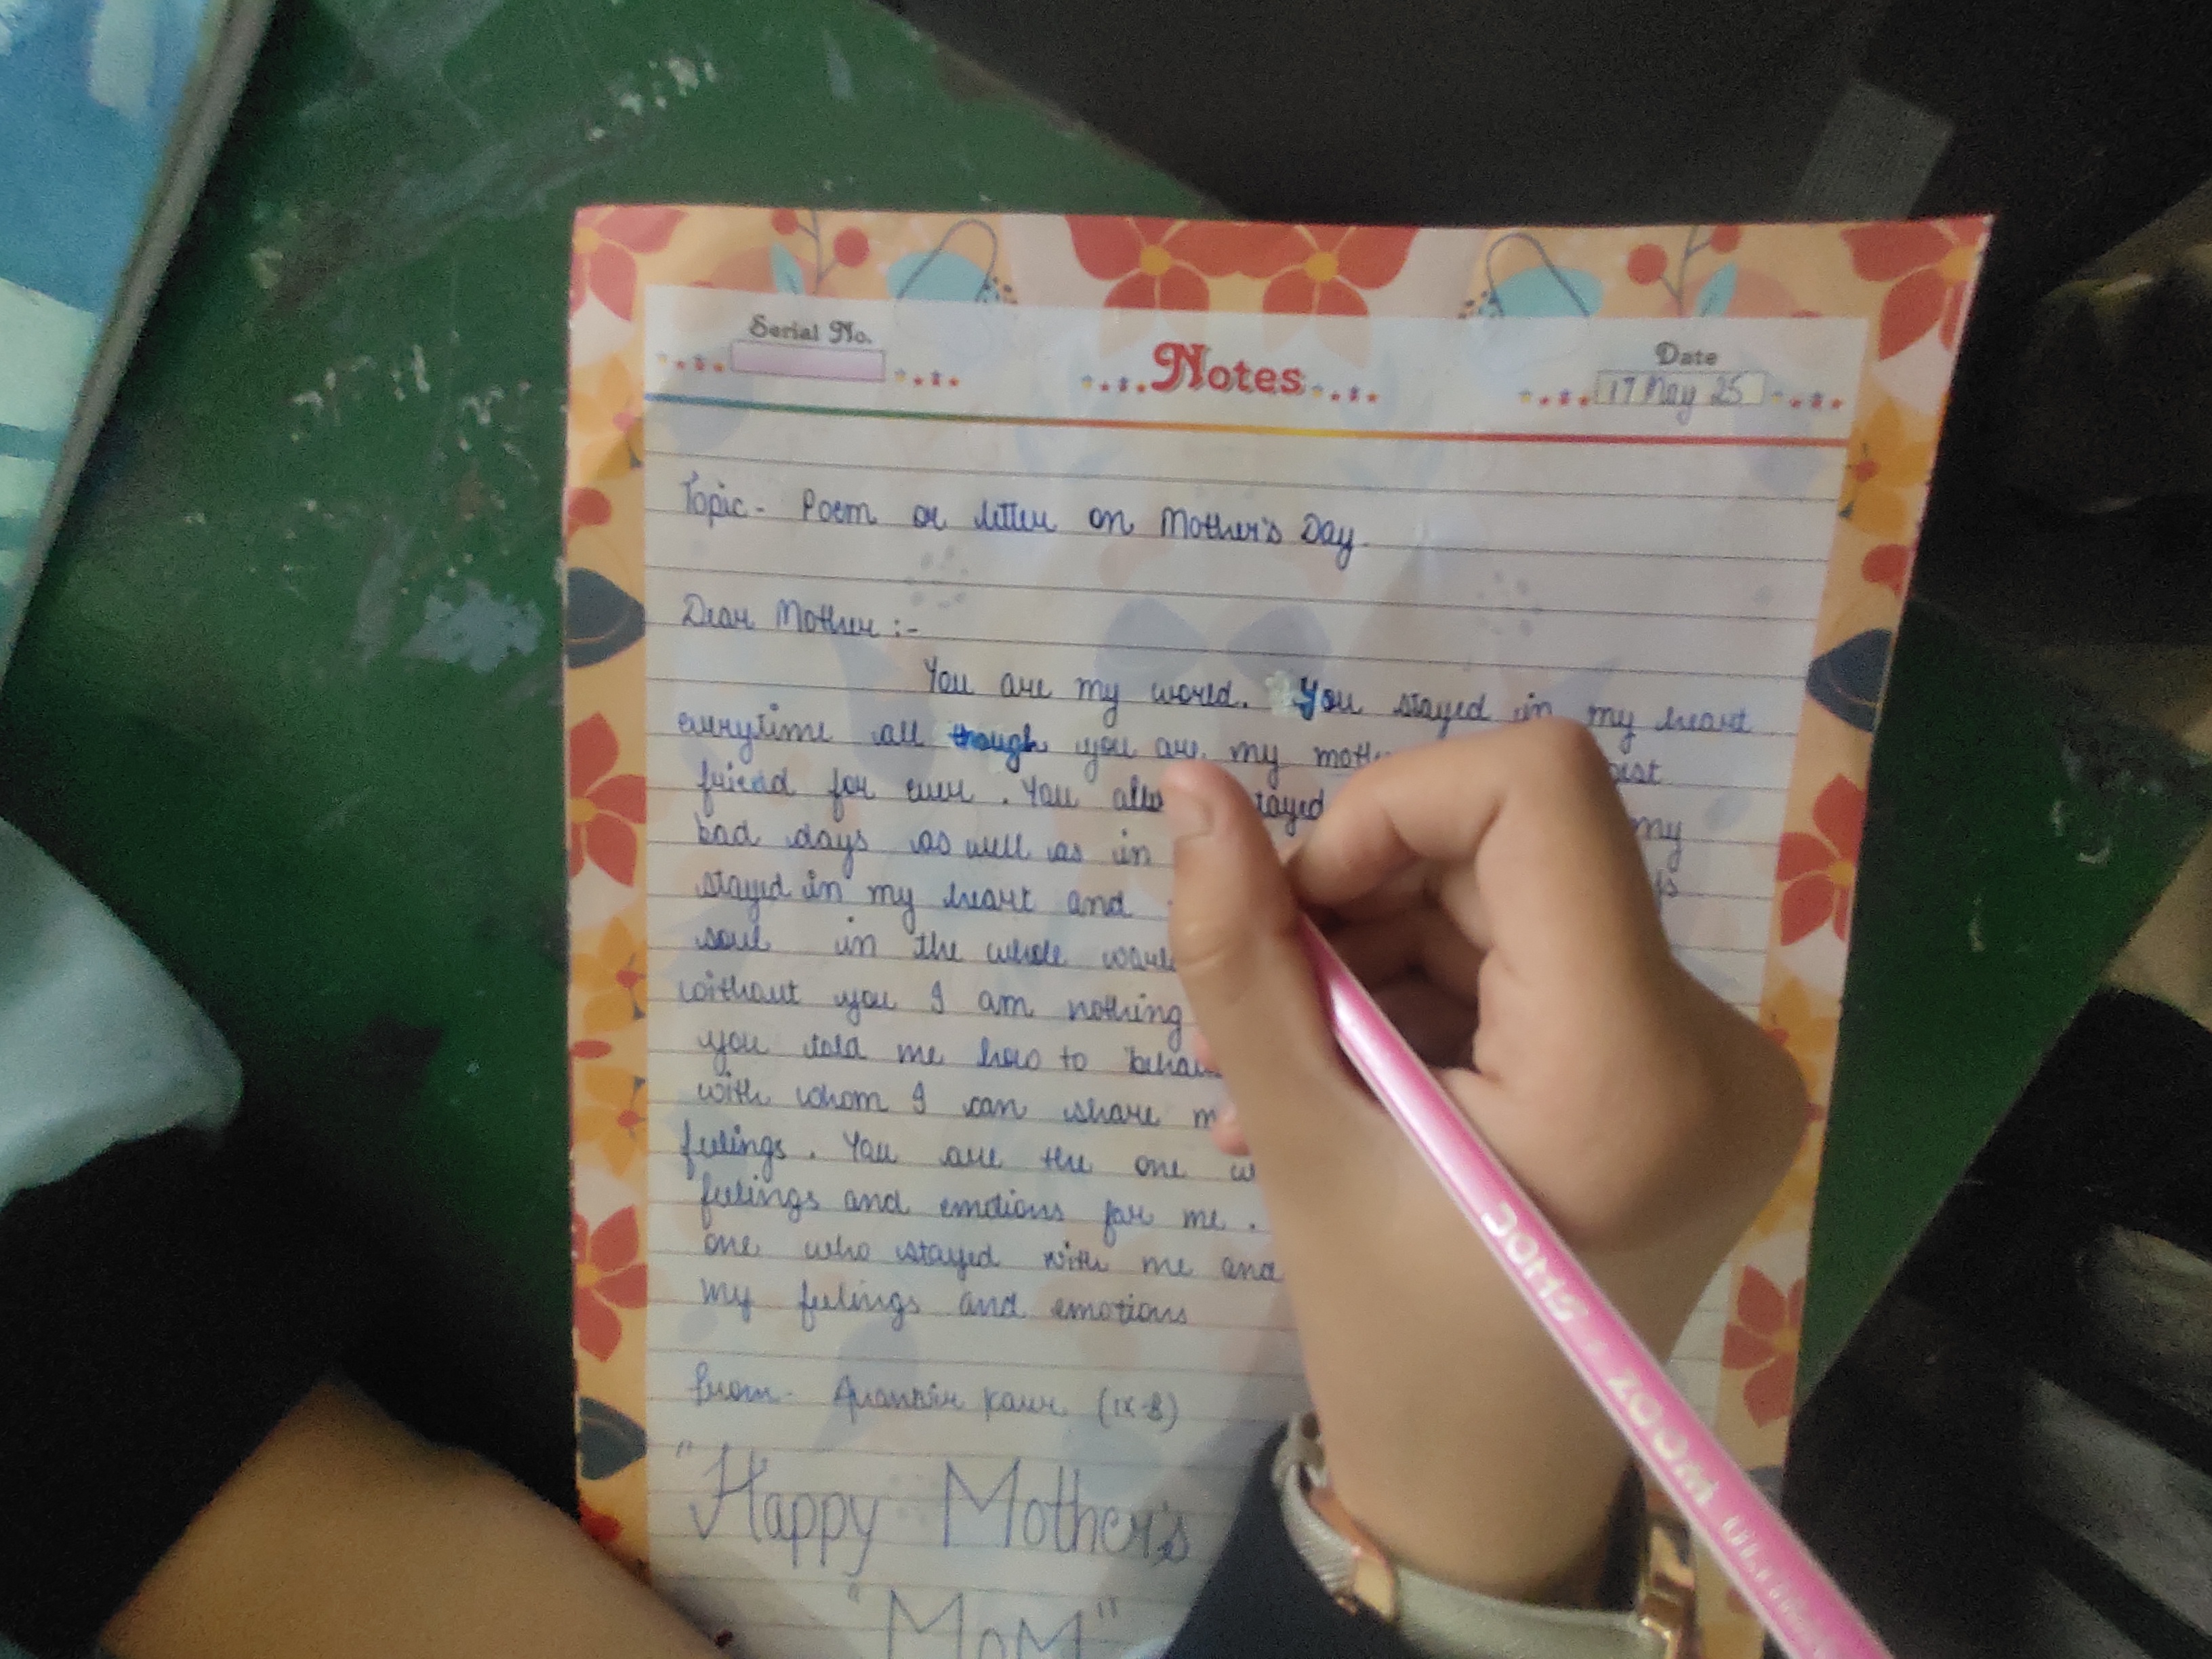 Serial No.
Notes
Date
17 May 25
Topic- Poem or letter on Mother's Day.
Dear Mother :-
You are my world. You stayed in my heart
everytime all though you are my
friend for ever . You
bad days as well as in
my
stayed in my heart and
soul in the whole
without you I am nothing
you told me how to
with whom I can share
feelings . You are the one
feelings and emotions for me .
one who stayed with me and
my feelings and emotions
From- Kaur (IX-B)
"Happy Mother's
"MOM"
DOMS ZOOM